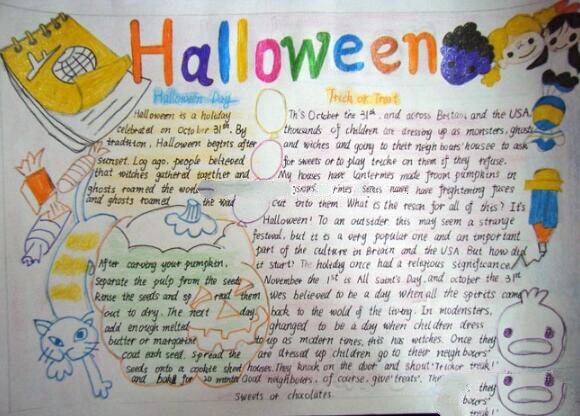 Halloween
Halloween Day
Halloween is a holiday
celebrated on october 31st. By
tradition, Halloween begins after
sunset. Log ago, people believed
that witches gathered together and
ghosts roamed the
and ghosts roamed the
After carving your pumpkin,
separate the pulp from the seeds
Rinse the seeds and them
out to dry. The next day,
add enough melted
butter or margarine
coat each seed. spread the
seeds onto a cookie sheet
and bake for 20 minutes
Trick or Treat
Th's October the 31st, and across Britain, and the USA,
thousands of children are dressing up as monsters, ghosts
and witches and going to their neigh bours' housee to ask
for sweets or to play tricke on them if they refuse.
Ny houses have lantermes made froom pumpkins in
have frightening faces
cut into them. What is the resan for all of this? It's
Halloween! To an outsider this may seem a strange
festeval, but it is a very popular one and an important
part of the culture in Britain and the USA. But how did
it start? The holiday once had a religious significance
November the 1st is All saint's Day, and october the 31st
wes believed to be a day when all the spirits came
back to the wold of the living. In modensters,
ghanged to be a day when children dress
up as modern times, this has witches. Once they
are dressed up children go to their neighbors'
houses. They knock on the door and shout 'Trickor treak!'
Good neighbours, of course, give 'treats'. The
they
boxers'
Sweets or chocolates.